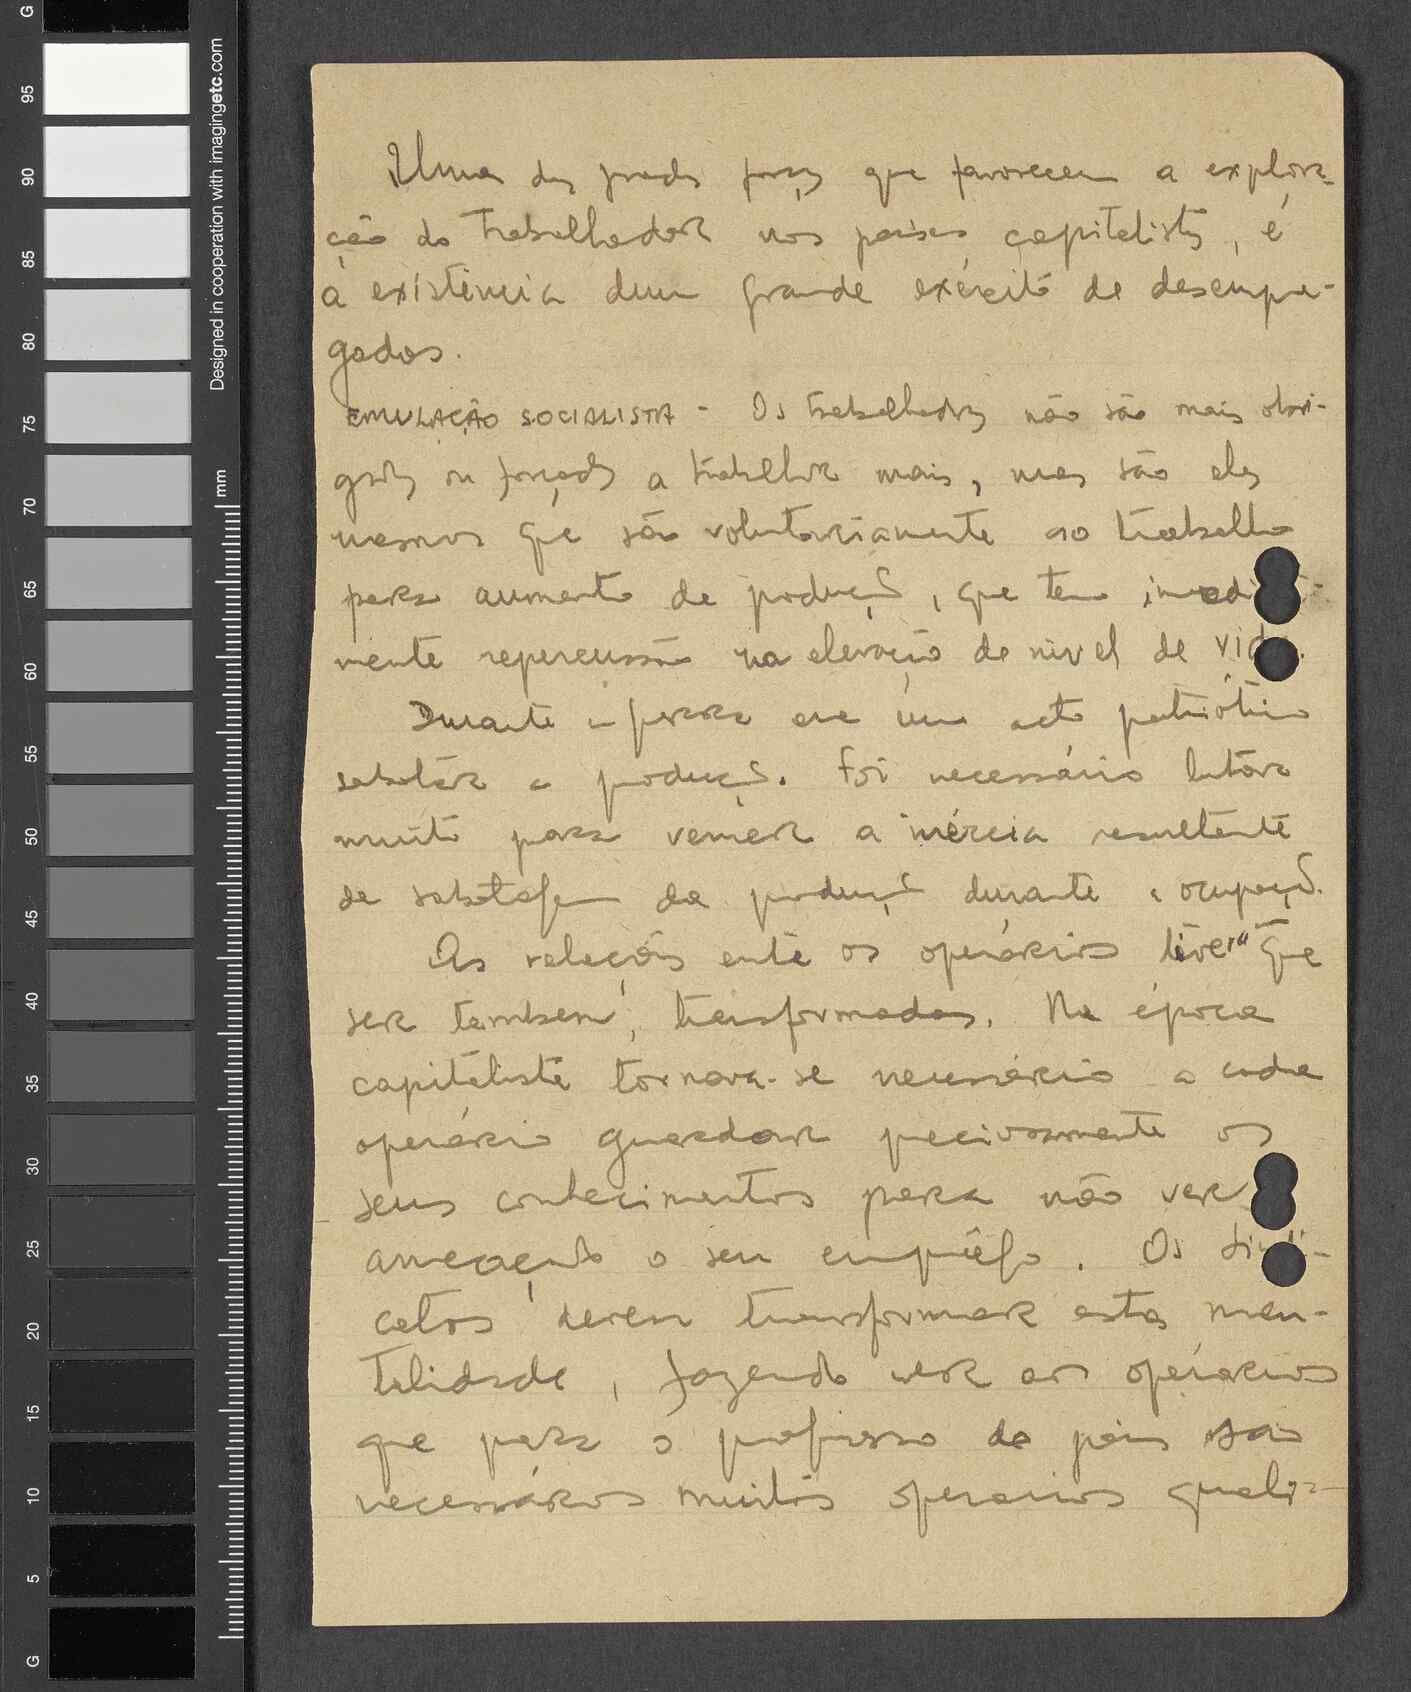 Uma das grandes forças que favorecem a explora-
ção do trabalhador nos países capitalistas, é
a existência dum grande exército de desempre-
gados.
EMULAÇÃO SOCIALISTA - Os trabalhadores não são mais obri-
gados ou forçados a trabalhar mais, mas são eles
mesmos que são voluntariamente ao trabalho
para aumento de produção, que tem imediata-
mente repercussão na elevação de nível de vida.
Durante a guerra era um acto patriótico
sabotar a produção. Foi necessário lutar
muito para vencer a inércia resultante
da sabotagem da produção durante a ocupação.
As relações entre os operários tiveram que
ser tambem, transformadas. Na época
capitalista tornava-se necessário a cada
operário guardar preciosamente os
seus conhecimentos para não ver
ameaçado o seu emprêgo. Os sindi-
catos devem transformar esta men-
talidade, fazendo ver aos operários
que para o progresso do país são
necessários muitos operarios quali-
Designed in cooperation with imagingetc.com
mm
G
95
90
85
80
75
70
65
60
55
50
45
40
35
30
25
20
15
10
5
G